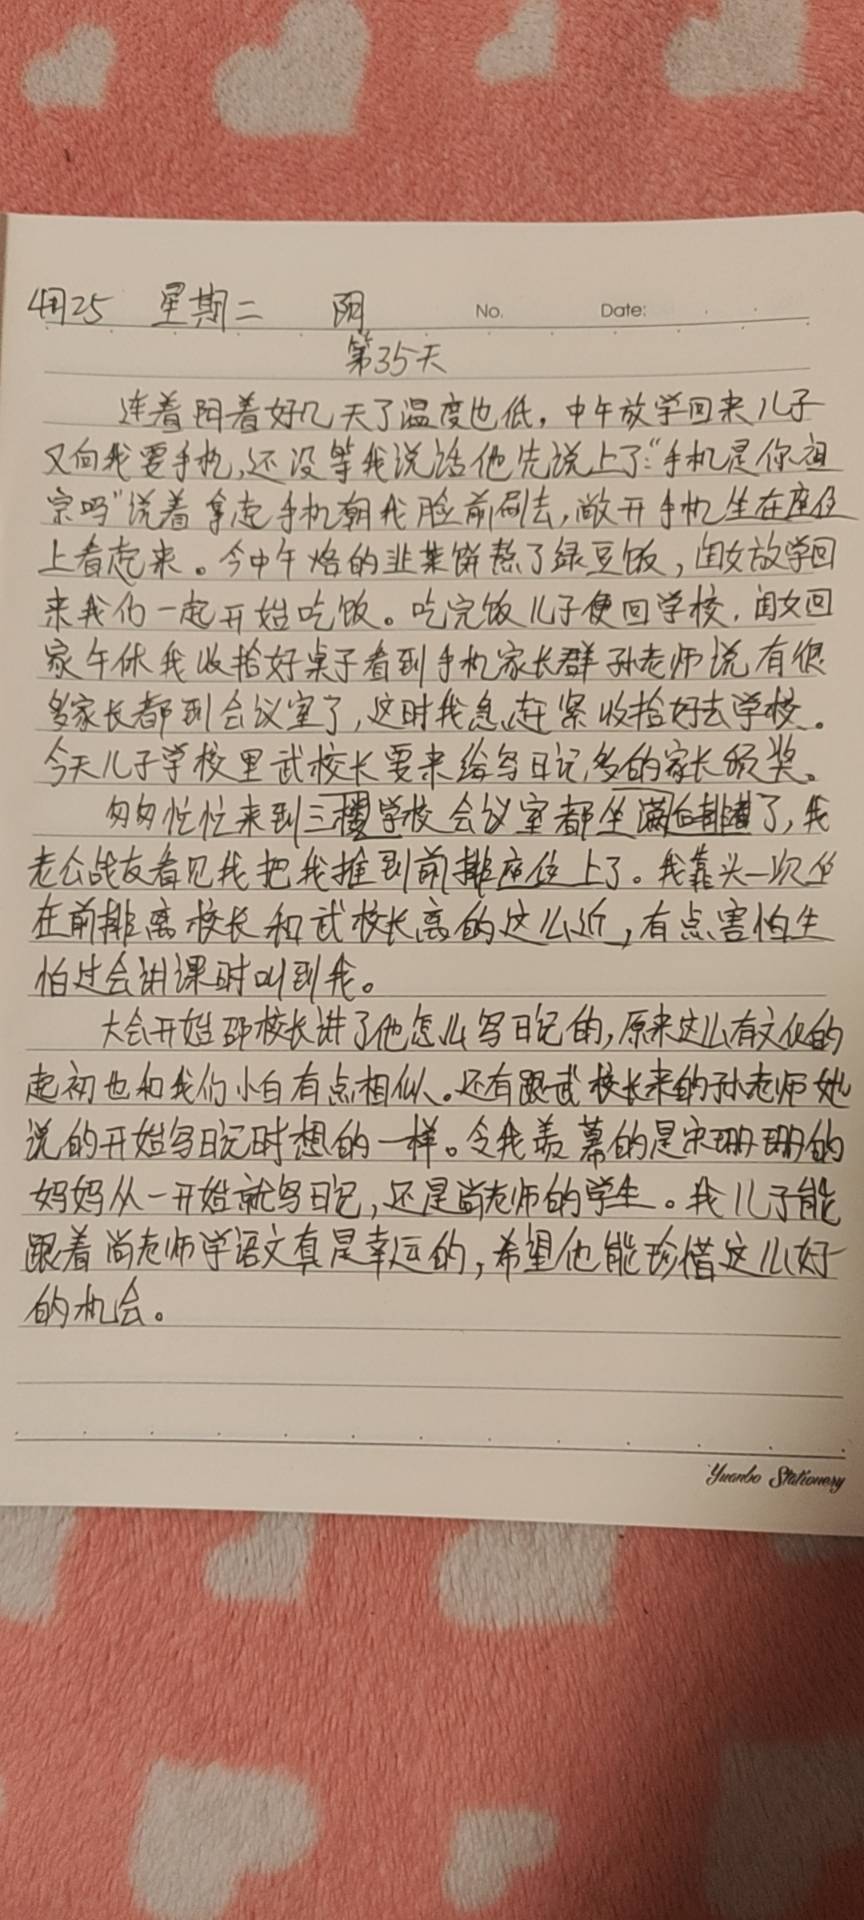 4月25 星期二 阴 No. Date:
第35天
连着阴着好几天了温度也低，中午放学回来儿子
又向我要手机，还没等我说话他先说上了："手机是你祖
宗吗"说着拿起手机朝我脸前刷去，敞开手机坐在座位
上看起来。今中午烙的韭菜饼熬了绿豆饭，闺女放学回
来我们一起开始吃饭。吃完饭儿子便回学校，闺女回
家午休我收拾好桌子看到手机家长群孙老师说有很
多家长都到会议室了，这时我急赶紧收拾好去学校。
今天儿子学校里武校长要来给写日记多的家长颁奖。
匆匆忙忙来到三楼学校会议室都坐满后排了，我
老公战友看见我把我推到前排座位上了。我靠头一次坐
在前排离校长和武校长离的这么近，有点害怕生
怕过会讲课时叫到我。
大会开始邵校长讲了他怎么写日记的，原来这么有文化的
起初也和我们小白有点相似。还有跟武校长来的孙老师她
说的开始写日记时想的一样。令我羡慕的是宋珊珊的
妈妈从一开始就写日记，还是尚老师的学生。我儿子能
跟着尚老师学语文真是幸运的，希望他能珍惜这么好
的机会。
Yuanbo Stationery